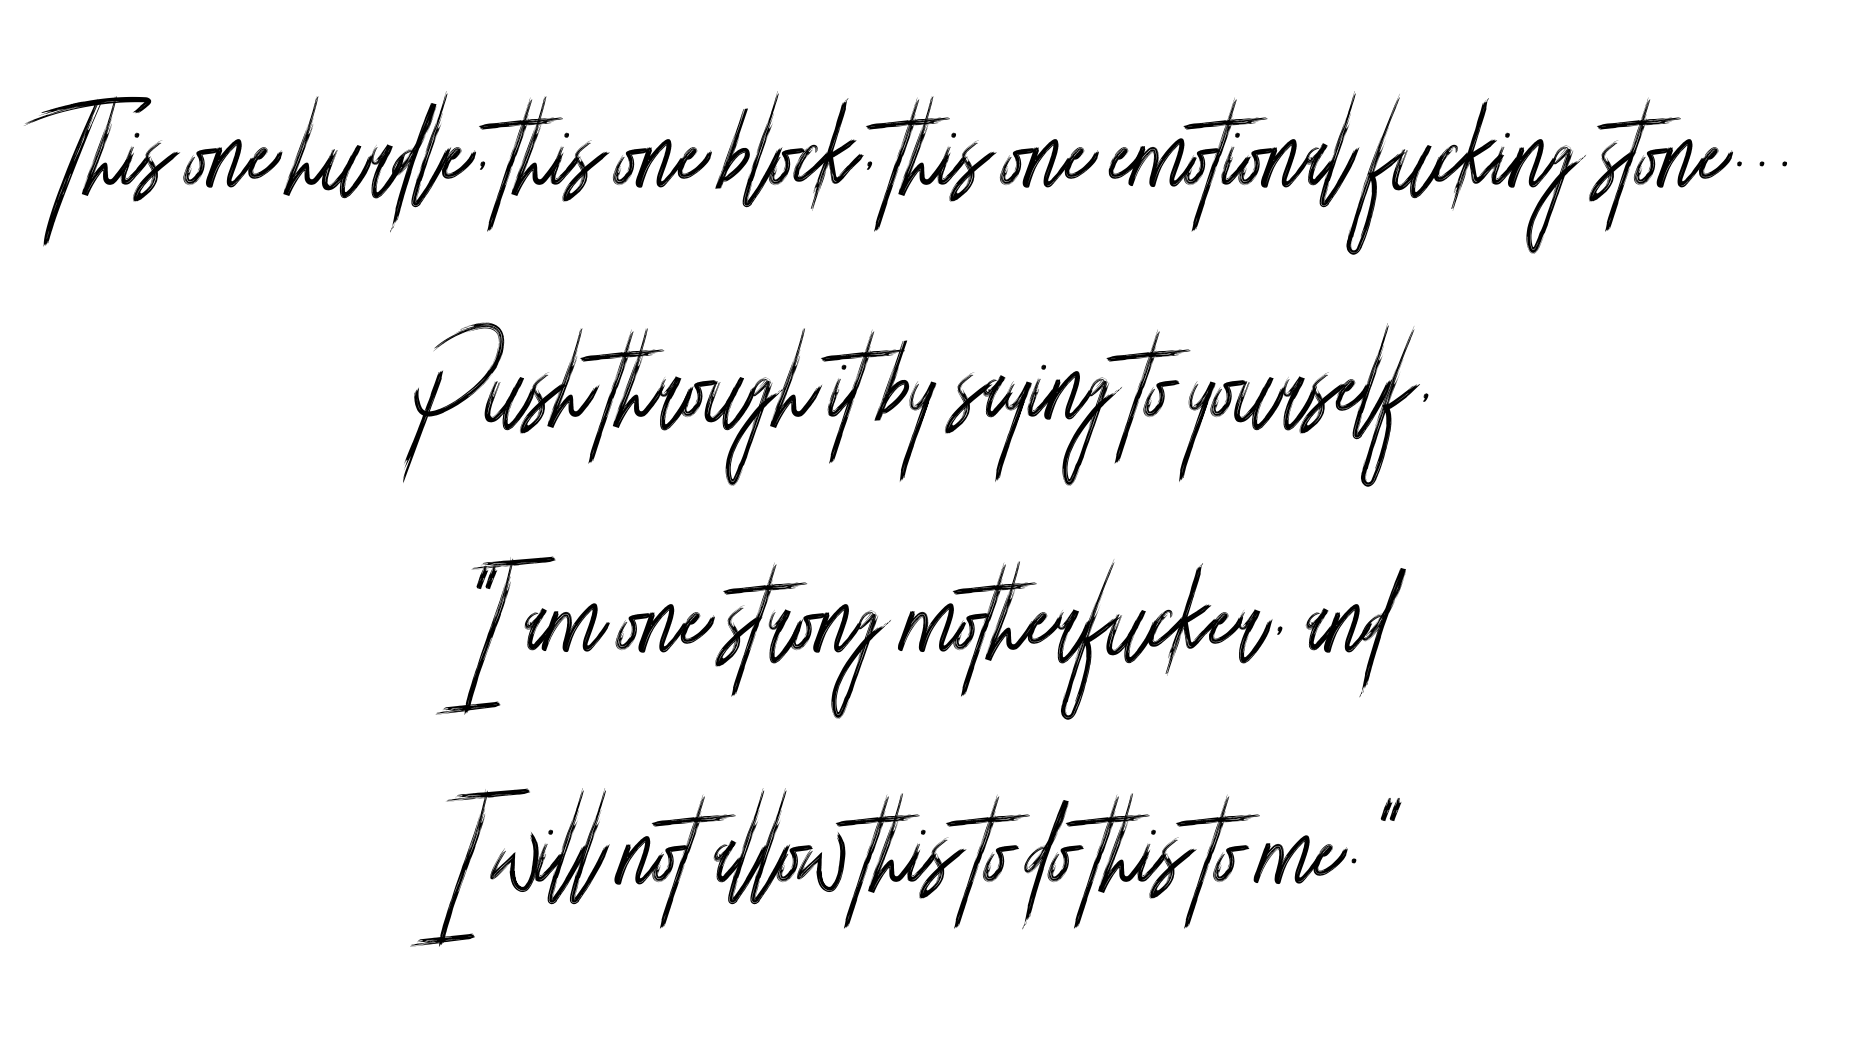 This one hurdle, this one block, this one emotional fucking stone...
Push through it by saying to yourself,
"I am one strong motherfucker, and
I will not allow this to do this to me."